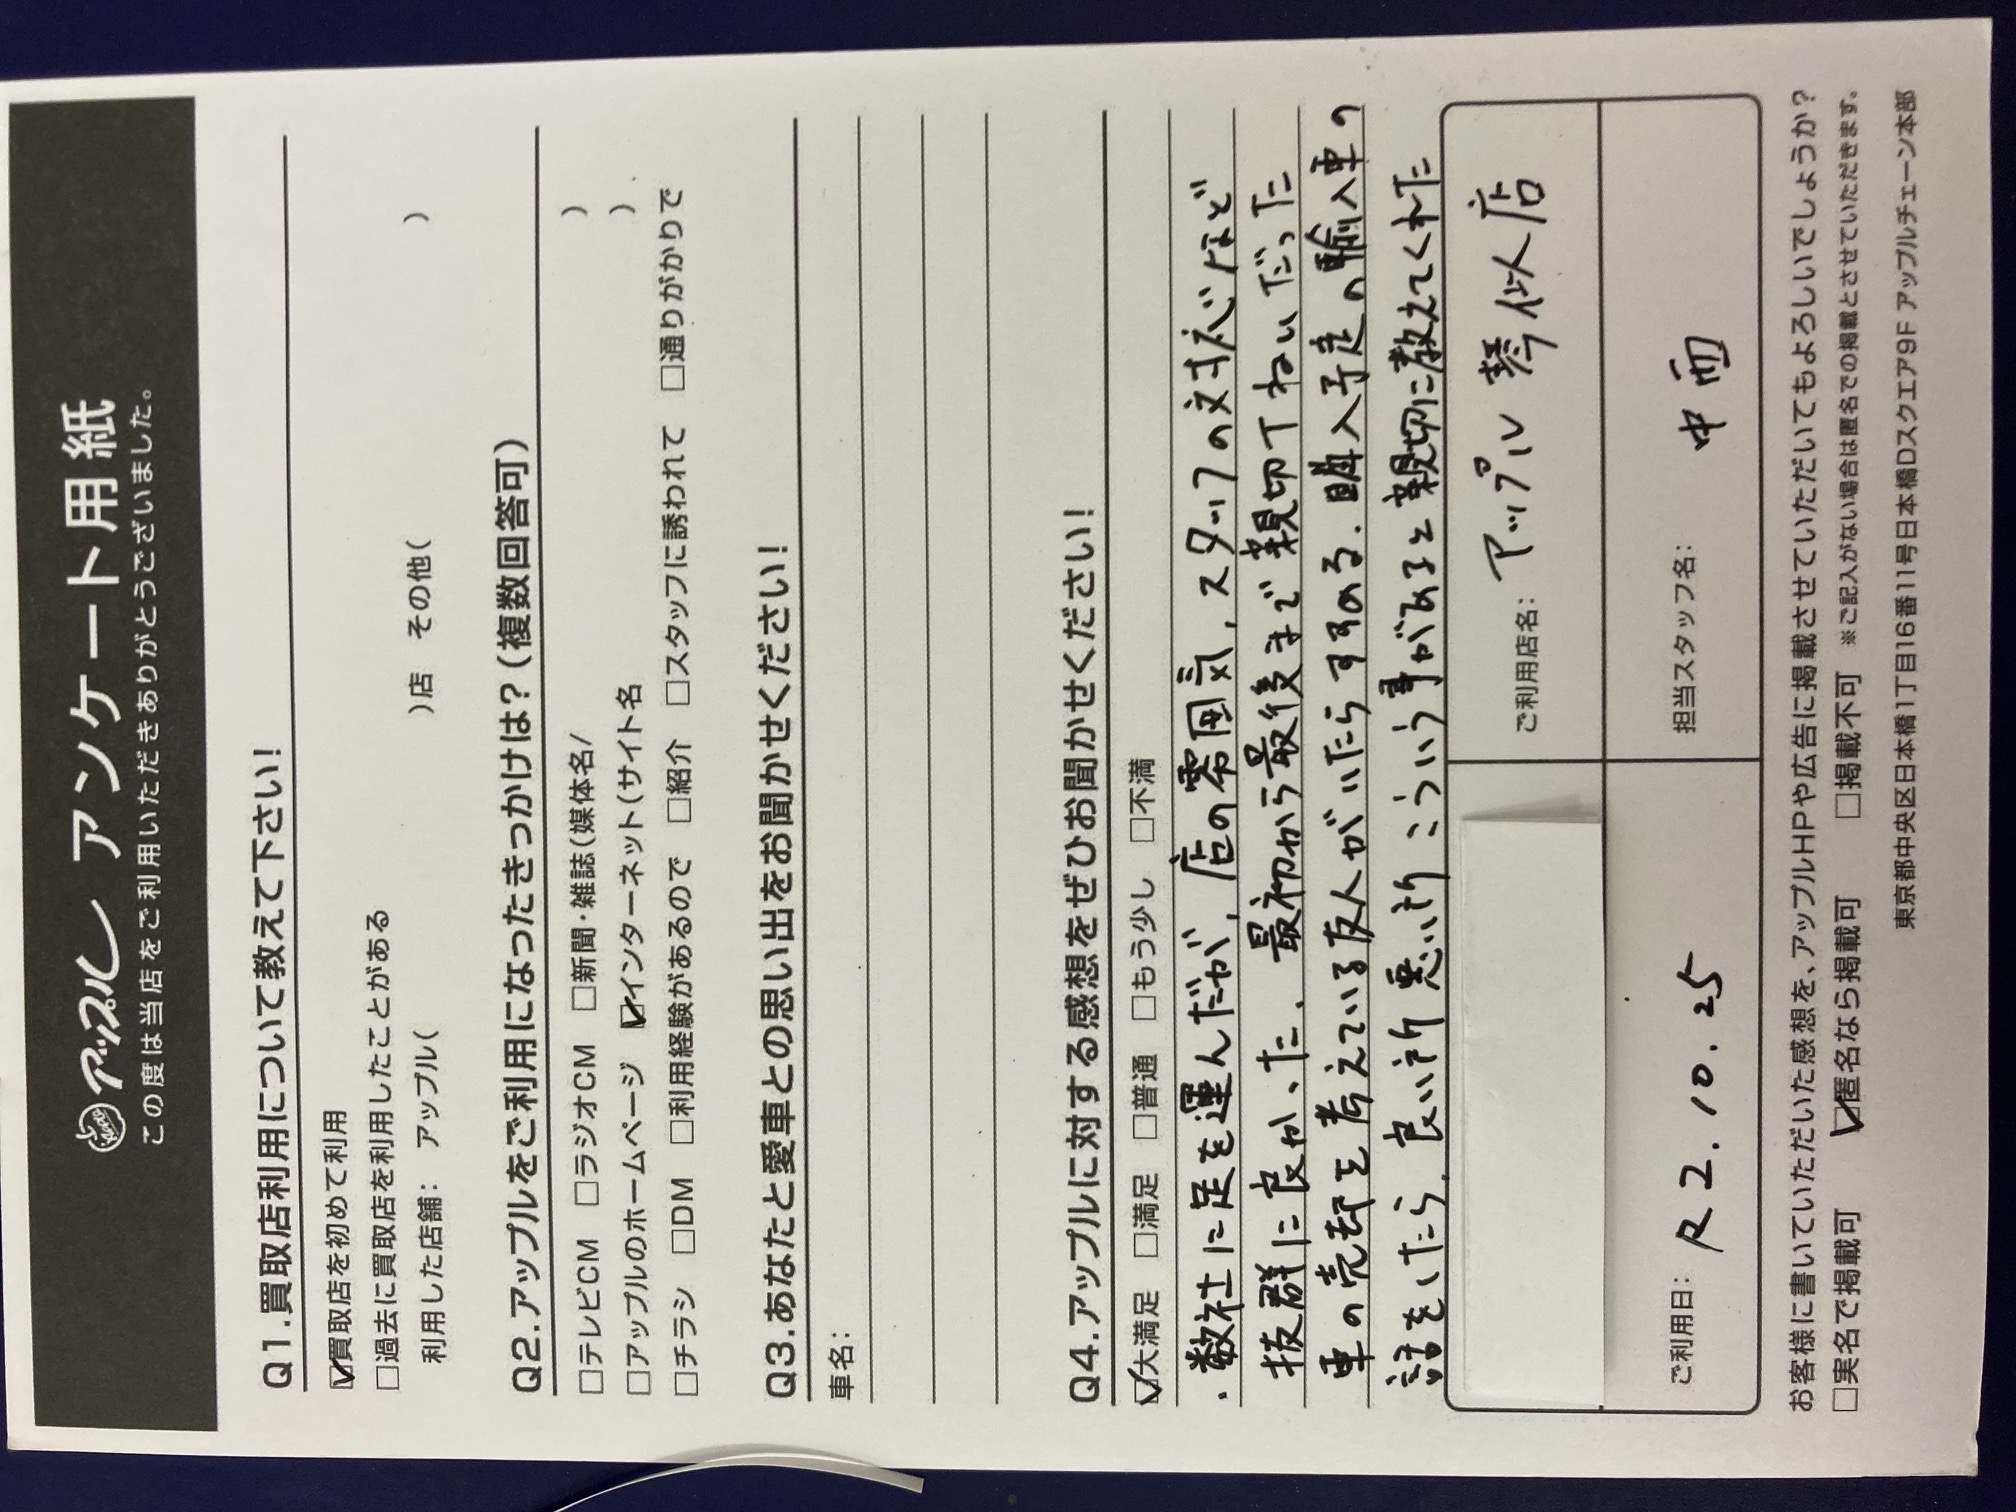 アップル アンケート用紙
この度は当店をご利用いただきありがとうございました。
Q1.買取店利用について教えて下さい!
☑買取店を初めて利用
□過去に買取店を利用したことがある
利用した店舗: アップル( )店 その他( )
Q2.アップルをご利用になったきっかけは?(複数回答可)
□テレビCM □ラジオCM □新聞・雑誌(媒体名/ )
□アップルのホームページ ☑インターネット(サイト名 )
□チラシ □DM □利用経験があるので □紹介 □スタッフに誘われて □通りがかりで
Q3.あなたと愛車との思い出をお聞かせください!
車名:
Q4.アップルに対する感想をぜひお聞かせください!
☑大満足 □満足 □普通 □もう少し □不満
・数社に足を運んだが、店の雰囲気、スタッフの対応など
抜群に良かった。最初から最後まで親切でねいだった
車の売却を考えている友人がいたらすすめる。購入予定の輸入車の
話をしたら、良い所悪い所こういう事があると親切に教えてくれた
ご利用店名: アップル 琴似店
ご利用日: R2.10.25
担当スタッフ名: 中西
お客様に書いていただいた感想を、アップルHPや広告に掲載させていただいてもよろしいでしょうか?
□実名で掲載可 ☑匿名なら掲載可 □掲載不可 ※ご記入がない場合は匿名での掲載とさせていただきます。
東京都中央区日本橋1丁目16番11号日本橋Dスクエア9F アップルチェーン本部